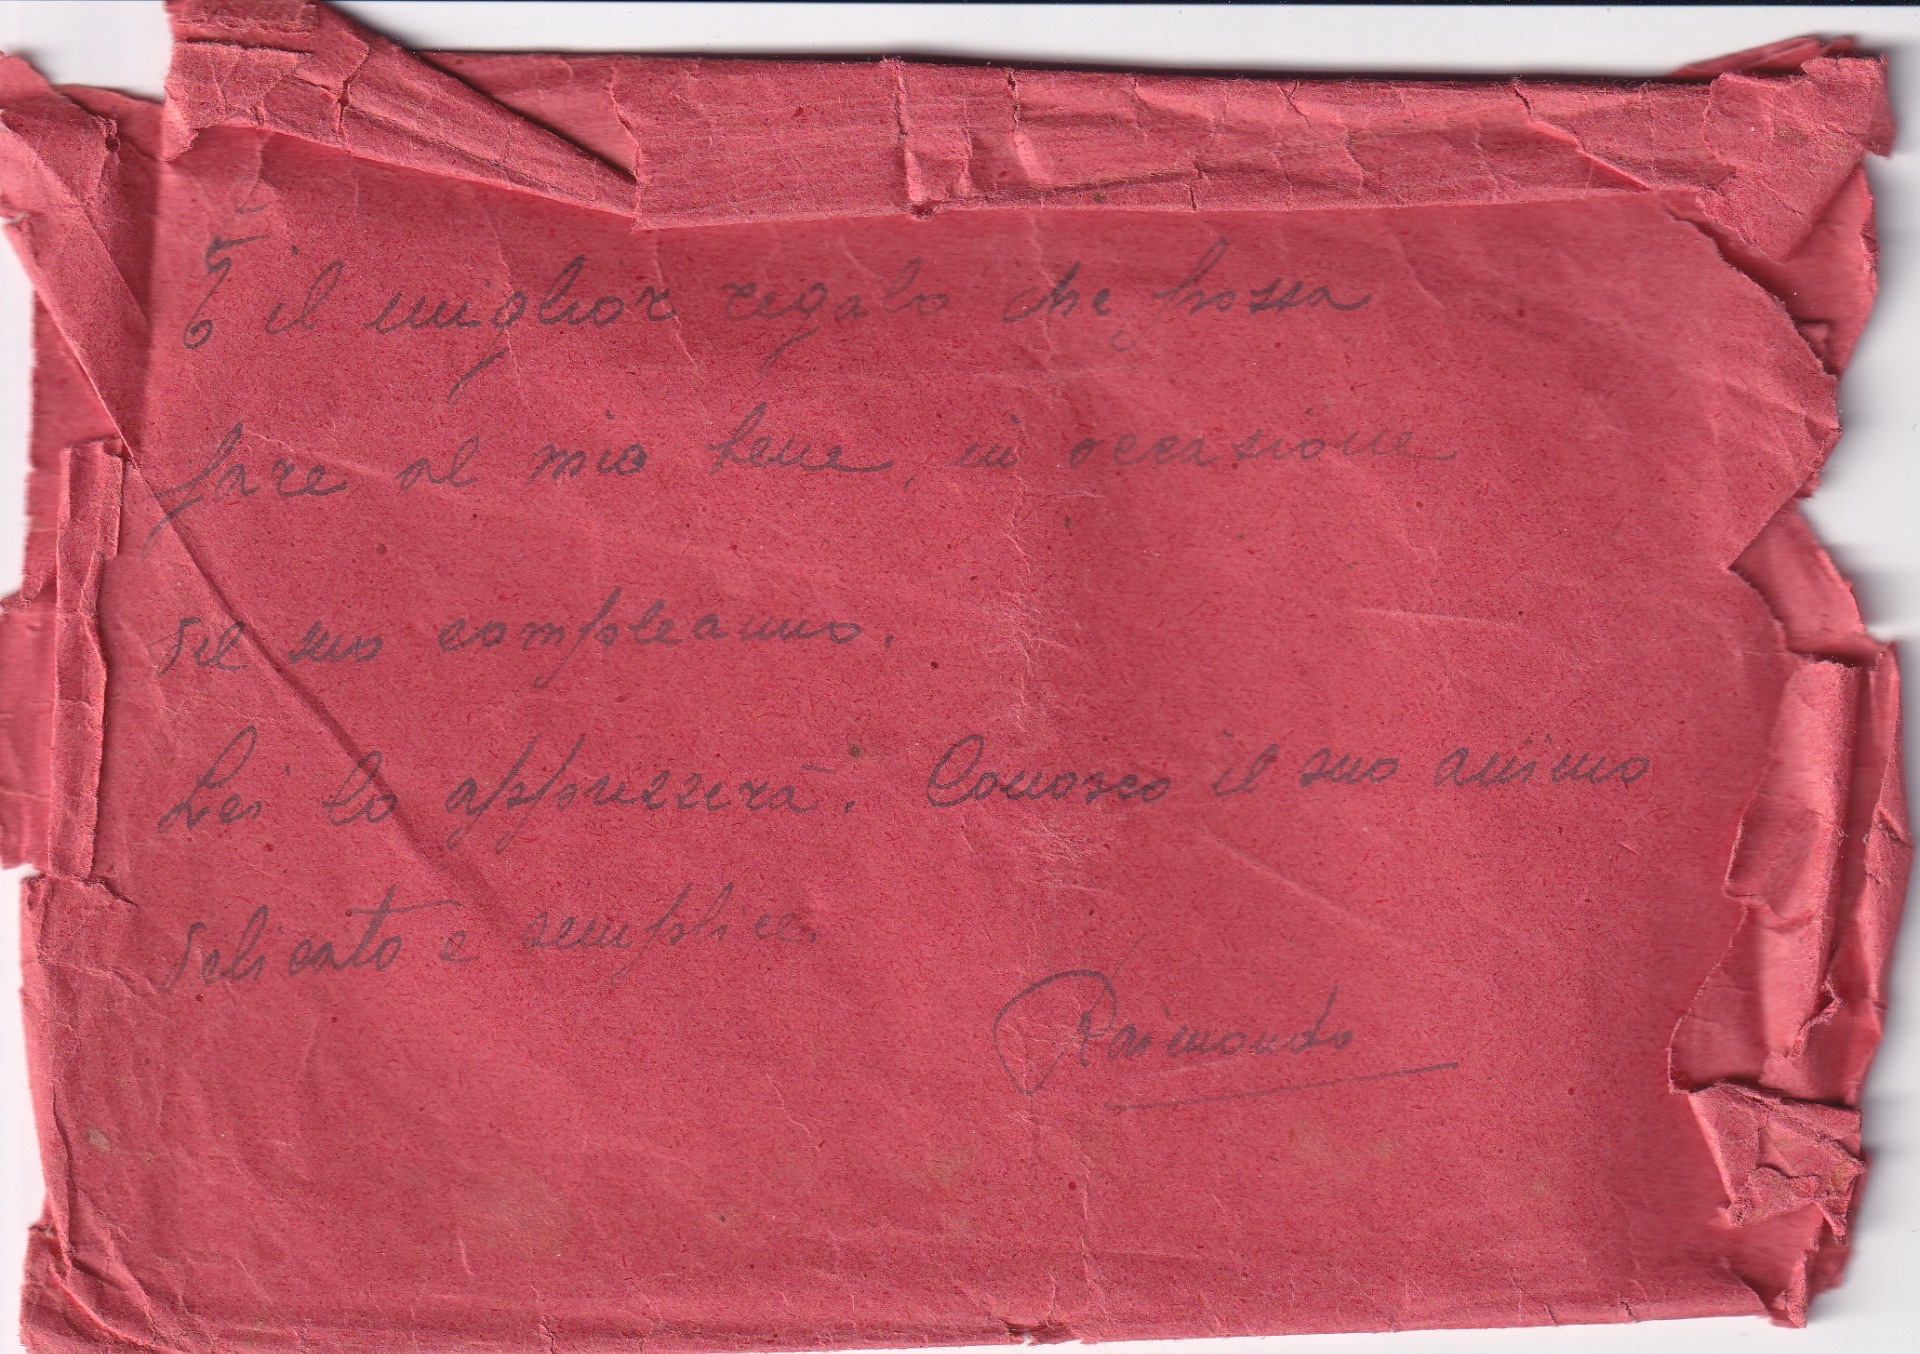 È il miglior regalo che possa
fare al mio bene, in occasione
del suo compleanno.
Lei lo apprezzerà. Conosco il suo animo
delicato e semplice.
Raimondo